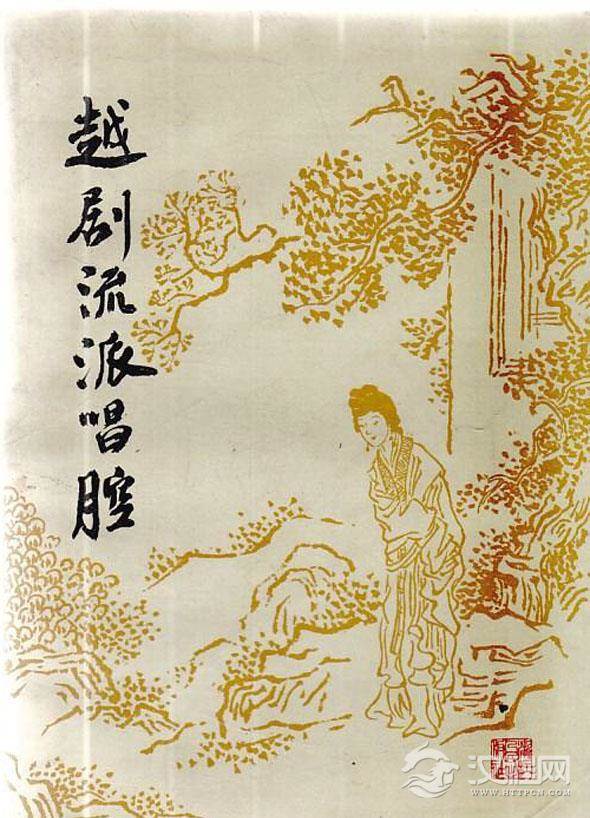 越剧流派唱腔
汉程网
WWW.HTTPCN.COM